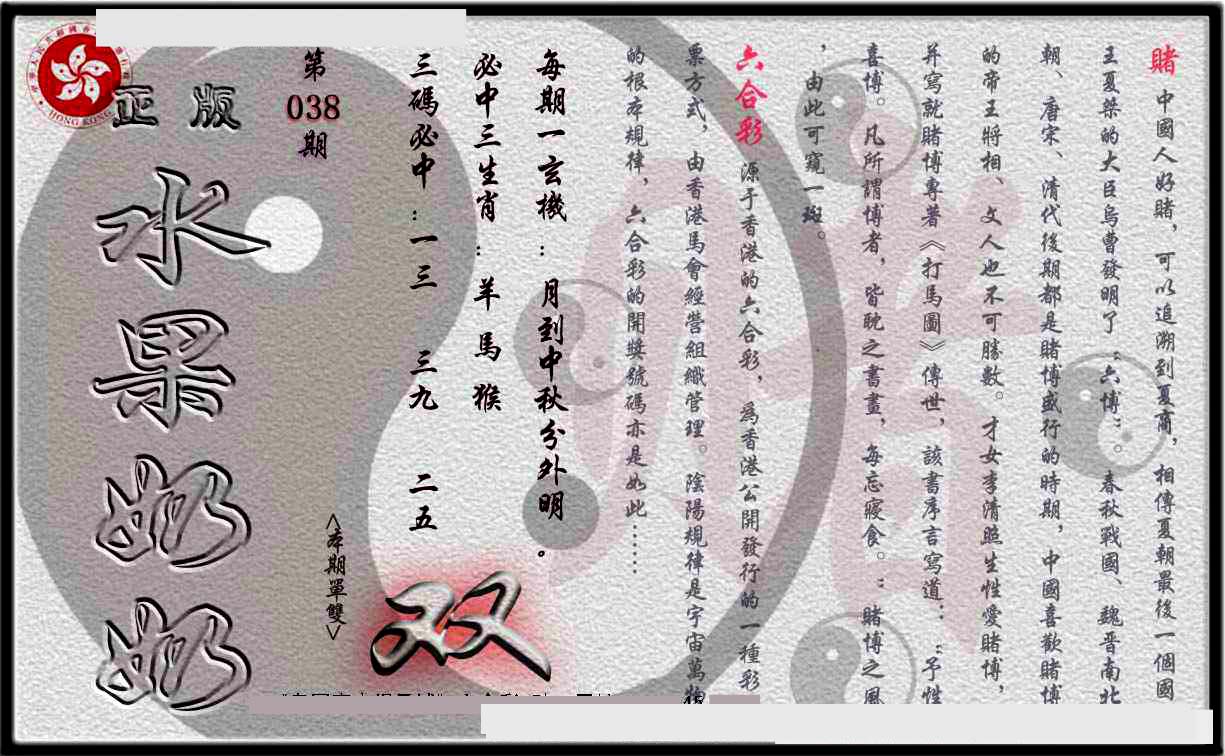 賭 中國人好賭，可以追溯到夏商，相傳夏朝最後一個國
王夏桀的大臣烏曹發明了“六博”。春秋戰國、魏晋南北
朝、唐宋、清代後期都是賭博盛行的時期，中國喜歡賭博
的帝王將相、文人也不可勝數。才女李清照生性愛賭博，
并寫就賭博專著《打馬圖》傳世，該書序言寫道：“予性
喜博。凡所謂博者，皆耽之書畫，每忘寢食。”賭博之風
，由此可窺一斑。
六合彩 源于香港的六合彩，為香港公開發行的一種彩
票方式，由香港馬會經營組織管理。陰陽規律是宇宙萬物
的根本規律，六合彩的開獎號碼亦是如此……
每期一玄機：月到中秋分外明。
必中三生肖：羊 馬 猴
三碼必中：一三 三九 二五
<本期單雙>
双
第
038
期
正版
水果奶奶
HONG KONG